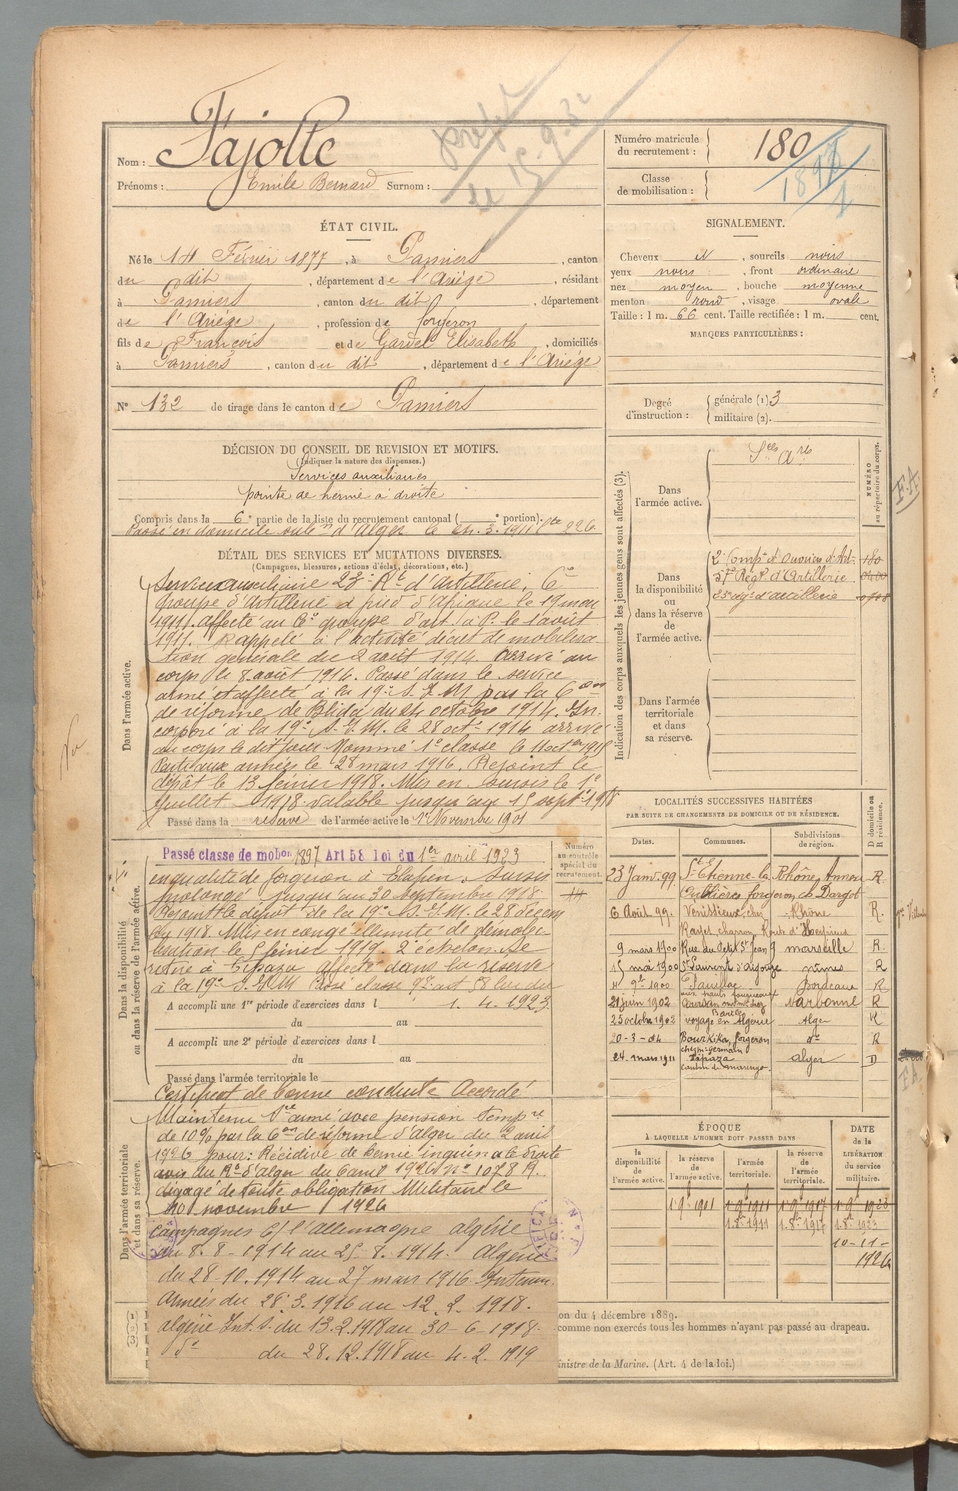 Nom : Fajolle
Prénoms : Emile Bernard Surnom :
Numéro matricule du recrutement : 180
Classe de mobilisation : 1897
ÉTAT CIVIL.
Né le 14 Février 1877, à Pamiers, canton
du dit, département de l'Ariège, résidant
à Pamiers, canton du dit, département
de l'Ariège, profession de forgeron
fils de François et de Gardel Elisabeth, domiciliés
à Pamiers, canton du dit, département de l'Ariège
N° 132 de tirage dans le canton de Pamiers
SIGNALEMENT.
Cheveux N, sourcils noirs
yeux noirs, front ordinaire
nez moyen, bouche moyenne
menton rond, visage ovale
Taille : 1 m. 66 cent. Taille rectifiée : 1 m. cent.
MARQUES PARTICULIÈRES :
Degré d'instruction : générale (1) 3
militaire (2).
DÉCISION DU CONSEIL DE REVISION ET MOTIFS.
(Indiquer la nature des dispenses.)
Services auxiliaires
pointe de hernie à droite
Compris dans la 6e partie de la liste du recrutement cantonal ( e portion).
Passé en domicile d'Alger le 24.3.1911 226
DÉTAIL DES SERVICES ET MUTATIONS DIVERSES.
(Campagnes, blessures, actions d'éclat, décorations, etc.)
Dans l'armée active.
Service auxiliaire 23e Rt d'artillerie. 6e
groupe d'Artillerie à pied d'Afrique le 17 mai
1911. affecté au 6e groupe d'art. à P. le 1 août
1911. Rappelé à l'activité décret de mobilisa
tion générale du 2 août 1914 arrivé au
corps le 8 août 1914. Passé dans le service
armé et affecté à la 19e S.I.M par la Con
de réforme de Blida du 24 octobre 1914. In
corporé à la 19e S.I.M. le 28 octe 1914 arrivé
au corps le dit jour. Nommé 1e classe le
Parti aux armées le 28 mars 1916. Rejoint le
dépôt le 13 février 1918. Mis en sursis le 1e
juillet 1918 valable jusqu'au 15 septe 1918
Passé dans la réserve de l'armée active le 1e Novembre 1901
Dans la disponibilité ou dans la réserve de l'armée active.
Passé classe de mobon 1897 Art 58 loi du 1er avril 1923
en qualité de forgeron à Sursis
prolongé jusqu'au 30 septembre 1918.
Rejoint le dépôt de la 19e S.I.M. le 28 décem
bre 1918. Mis en congé illimité de démobi
lisation le 5 février 1919. 2e échelon. Se
retire à Tipaza affecté dans la réserve
à la 19e S.I.M Passé classe 97 art 58 loi du
1. 4. 1923
A accompli une 1re période d'exercices dans l
du au
A accompli une 2e période d'exercices dans l
du au
Passé dans l'armée territoriale le
Certificat de bonne conduite Accordé
Dans l'armée territoriale et dans sa réserve.
Maintenu Sce armé avec pension tempre
de 10% par la Con de réforme d'Alger du 2 avril
1926 pour : Récidive de hernie inguinale droite
avis du Rt d'Alger du 6 août 1926 n° 1078 R.
dégagé de toute obligation Militaire le
10 novembre 1926
Campagnes c/ l'allemagne algérie
du 8.8.1914 au 25.8.1914. Algérie
du 28.10.1914 au 27 mars 1916
Armées du 28.3.1916 au 12.2.1918.
algérie Int. S. du 13.2.1918 au 30-6-1918.
do du 28.12.1918 au 4.2.1919
Numéro au contrôle spécial du recrutement.
Indication des corps auxquels les jeunes gens sont affectés (3).
NUMÉRO au répertoire du corps.
Dans l'armée active.
Dans la disponibilité ou dans la réserve de l'armée active.
2e Compie d'ouvriers d'Art. 180
Régt d'Artillerie
d'artillerie
Dans l'armée territoriale et dans sa réserve.
LOCALITÉS SUCCESSIVES HABITÉES
PAR SUITE DE CHANGEMENTS DE DOMICILE OU DE RÉSIDENCE.
Dates. Communes. Subdivisions de région. D domicile ou R résidence.
23 Janv. 99 R
6 Août 99. Vénissieux, chez Rhône R.
9 mars 1900 Rue du Petit St Jean 9 marseille R.
15 mai 1900 St Laurent d'aigouze nimes R
1900 Bordeaux R
21 juin 1902 Narbonne R
25 octobre 1902 voyage en Algérie Alger R
20-3-04 Bourkika, forgeron chez Mr Germain do R
24. mars 1911 Tipaza canton de marengo alger D
ÉPOQUE
À LAQUELLE L'HOMME DOIT PASSER DANS
la disponibilité de l'armée active.
la réserve de l'armée active.
l'armée territoriale.
la réserve de l'armée territoriale.
DATE de la LIBÉRATION du service militaire.
1er 9bre 1901 1er 9bre 1911 1er 9bre 1917 1er 9bre 1923
1.8.1911 1.8.1917 1.8.1923
10-11-1926
on du 4 décembre 1889.
comme non exercés tous les hommes n'ayant pas passé au drapeau.
inistre de la Marine. (Art. 4 de la loi.)